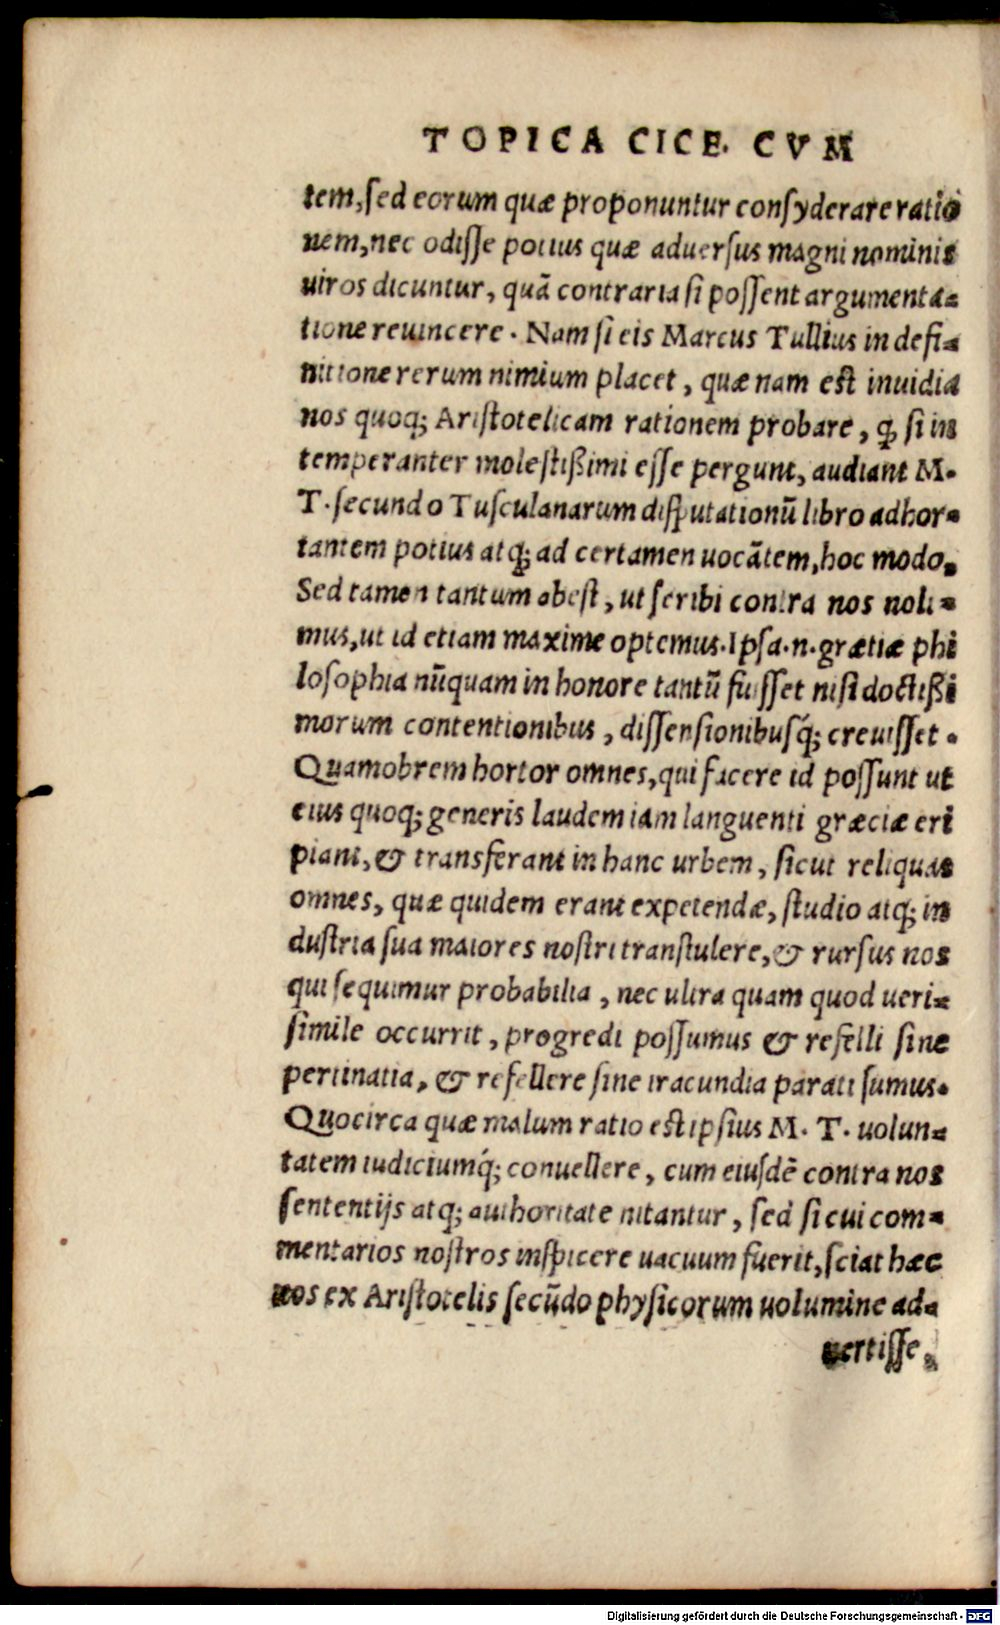 TOPICA CICE. CVM
tem, sed eorum quæ proponuntur consyderare ratio
nem, nec odisse potius quæ aduersus magni nominis
uiros dicuntur, quā contraria si possent argumenta-
tione reuincere. Nam si eis Marcus Tullius in defi-
nitione rerum nimium placet, quæ nam est inuidia
nos quoq; Aristotelicam rationem probare, ꝙ si in
temperanter molestißimi esse pergunt, audiant M.
T. secundo Tusculanarum disputationū libro adhor-
tantem potius atq; ad certamen uocātem, hoc modo.
Sed tamen tantum abest, ut scribi contra nos noli-
mus, ut id etiam maxime optemus. Ipsa.n.grætiæ phi
losophia nūquam in honore tantū fuisset nisi doctißi
morum contentionibus, dissensionibusq́; creuisset.
Quamobrem hortor omnes, qui facere id possunt ut
eius quoq; generis laudem iam languenti græciæ eri
piant, & transferant in hanc urbem, sicut reliquas
omnes, quæ quidem erant expetendæ, studio atq; in
dustria sua maiores nostri transtulere, & rursus nos
qui sequimur probabilia, nec ultra quam quod ueri-
simile occurrit, progredi possumus & refelli sine
pertinatia, & refellere sine iracundia parati sumus.
Quocirca quæ malum ratio est ipsius M. T. uolun-
tatem iudiciumq́; conuellere, cum eiusdē contra nos
sententijs atq; authoritate nitantur, sed si cui com-
mentarios nostros inspicere uacuum fuerit, sciat hæc
nos ex Aristotelis secūdo physicorum uolumine ad-
uertisse.
Digitalisierung gefördert durch die Deutsche Forschungsgemeinschaft - DFG